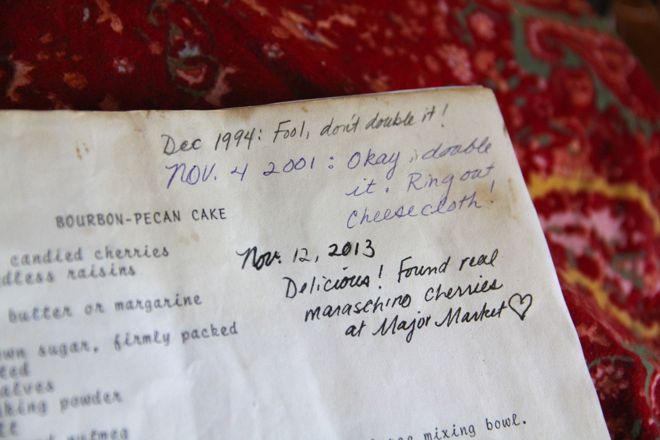 Dec 1994: Fool, don't double it!
NOV. 4 2001: Okay, double
it. Ring out
Cheesecloth!
BOURBON-PECAN CAKE
candied cherries
raisins
Nov. 12, 2013
Delicious! Found real
maraschino cherries
at Major Market♡
butter or margarine
sugar, firmly packed
powder
nutmeg
mixing bowl.